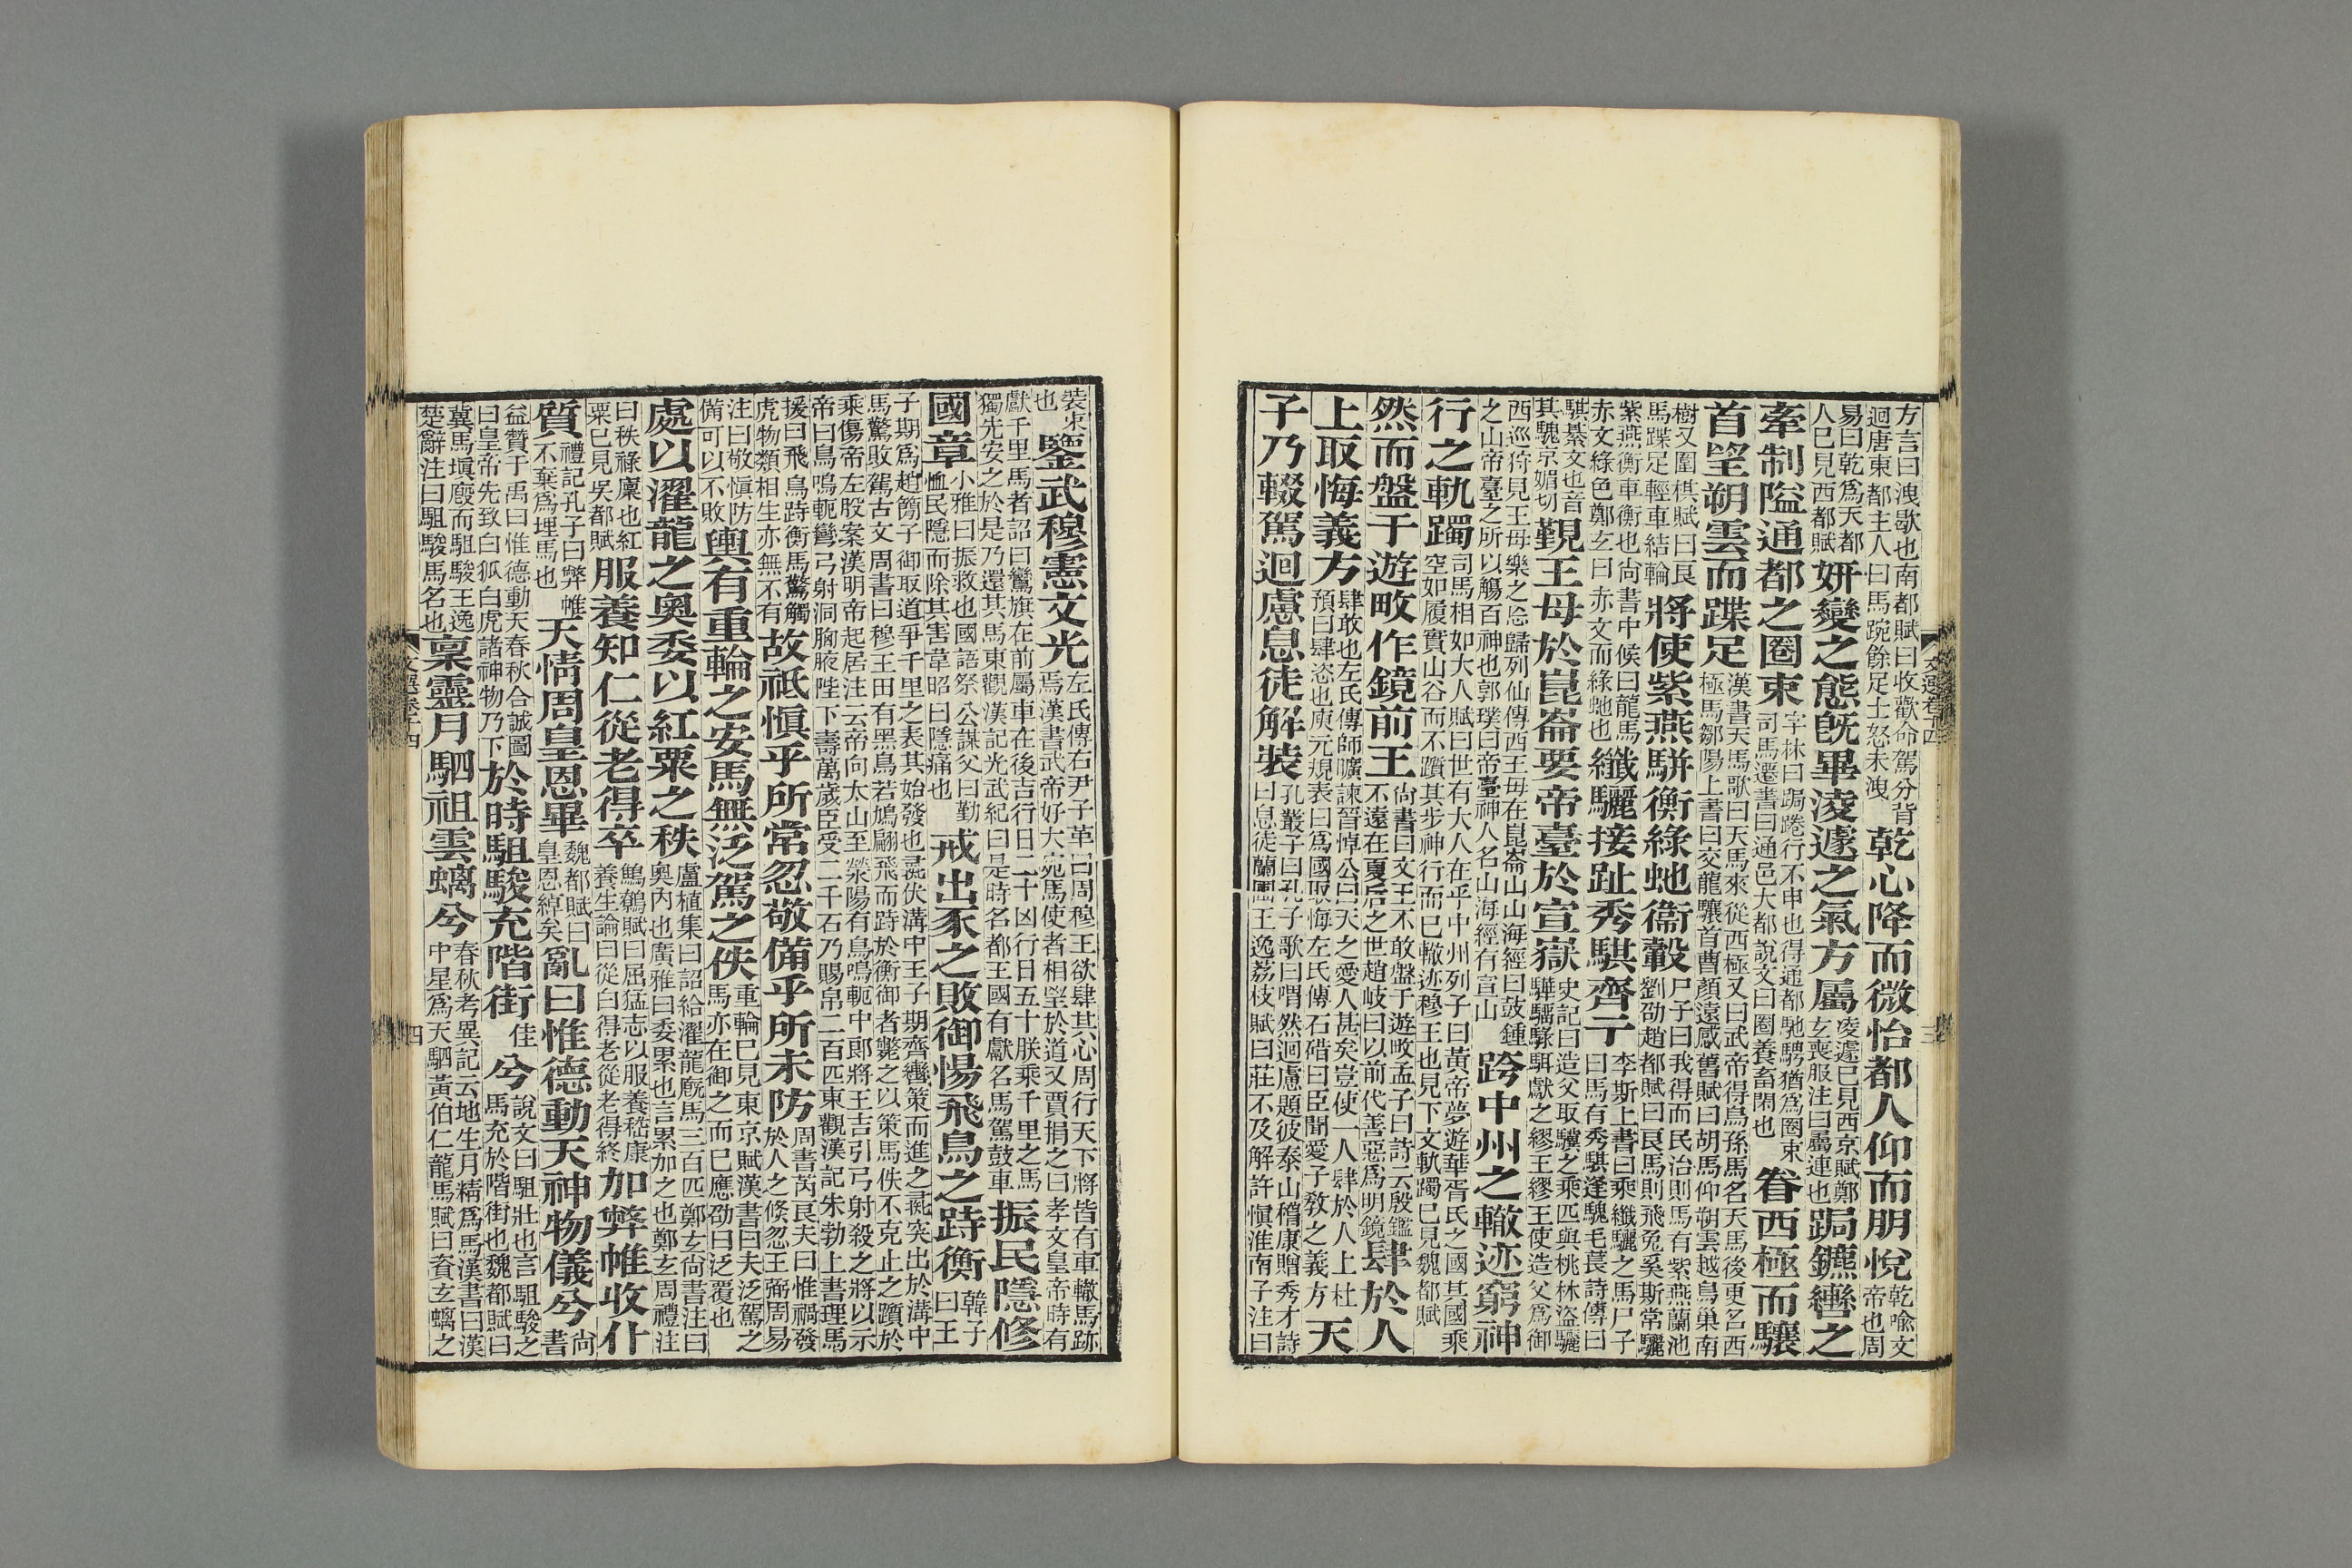 方言曰洩歇也南都賦曰收歡命駕分背迴唐東都主人曰馬踠餘足士怒未洩乾心降而微怡都人仰而朋悅乾喻文帝也周
易曰乾爲天都人已見西都賦妍變之態旣畢淩遽之氣方屬淩遽已見西京賦鄭玄喪服注曰屬連也跼鑣轡之
牽制隘通都之圈束字林曰跼踡行不申也得通都馳騁猶爲圈束司馬遷書曰通邑大都說文曰圈養畜閑也眷西極而驤
首望朔雲而蹀足漢書天馬歌曰天馬來從西極又曰武帝得烏孫馬名天馬後更名西極馬鄒陽上書曰交龍驤首曹顏遠感舊賦曰胡馬仰朔雲越鳥巢南
樹又圍棋賦曰良馬蹀足輕車結輪將使紫燕駢衡綠虵衞轂尸子曰我得而民治則馬有紫燕蘭池劉劭趙都賦曰良馬則飛兔奚斯常驪
紫燕衡車衡也尚書中候曰龍馬赤文綠色鄭玄曰赤文而綠虵也纖驪接趾秀騏齊亍李斯上書曰乘纖驪之馬尸子曰馬有秀騏逢騩毛萇詩傳曰
騏綦文也音其騩京媚切覲王母於崑崙要帝臺於宣嶽史記曰造父取驥之乘匹與桃林盜驪驊騮騄駬獻之繆王繆王使造父爲御
西巡狩見王母樂之忘歸列仙傳西王母在崑崙山山海經曰鼓鍾之山帝臺之所以觴百神也郭璞曰帝臺神人名山海經有宣山跨中州之轍迹窮神
行之軌躅司馬相如大人賦曰世有大人在乎中州列子曰黃帝夢遊華胥氏之國其國乘空如履實山谷而不躓其步神行而已轍迹穆王也見下文軌躅已見魏都賦
然而盤于遊畋作鏡前王尚書曰文王不敢盤于遊畋孟子曰詩云殷鑑不遠在夏后之世趙岐曰以前代善惡爲明鏡肆於人
上取悔義方肆敢也左氏傳師曠諫晉悼公曰天之愛人甚矣豈使一人肆於人上杜預曰肆恣也庾元規表曰爲國取悔左氏傳石碏曰臣聞愛子敎之義方天
子乃輟駕迴慮息徒解裝孔叢子曰孔子歌曰喟然迴慮題彼泰山嵇康贈秀才詩曰息徒蘭圃王逸荔枝賦曰莊不及解許愼淮南子注曰
裝束也鑒武穆憲文光左氏傳右尹子革曰周穆王欲肆其心周行天下將皆有車轍馬跡焉漢書武帝好大宛馬使者相望於道又賈捐之曰孝文皇帝時有
獻千里馬者詔曰鸞旗在前屬車在後吉行日二十凶行日五十朕乘千里之馬獨先安之於是乃還其馬東觀漢記光武紀曰是時名都王國有獻名馬駕鼓車振民隱修
國章小雅曰振救也國語祭公謀父曰勤恤民隱而除其害韋昭曰隱痛也戒出豕之敗御惕飛鳥之跱衡韓子曰王
子期爲趙簡子御取道爭千里之表其始發也彘伏溝中王子期齊轡策而進之彘突出於溝中馬驚敗駕古文周書曰穆王田有黑鳥若鳩翩飛而跱於衡御者斃之以策馬佚不克止之躓於
乘傷帝左股案漢明帝起居注云帝向太山至滎陽有鳥鳴軛中郎將王吉引弓射殺之將以示帝曰鳥鳴軛彎弓射洞胸腋陛下壽萬歲臣受二千石乃賜帛二百匹東觀漢記朱勃上書理馬
援曰飛鳥跱衡馬驚觸虎物類相生亦無不有故祗愼乎所常忽敬備乎所未防周書芮良夫曰惟禍發於人之倏忽王弼周易
注曰敬愼防備可以不敗輿有重輪之安馬無泛駕之佚重輪已見東京賦漢書曰夫泛駕之馬亦在御之而已應劭曰泛覆也
處以濯龍之奧委以紅粟之秩盧植集曰詔給濯龍廐馬三百匹鄭玄尚書注曰奧內也廣雅曰委累也言累加之也鄭玄周禮注
曰秩祿廩也紅粟已見吳都賦服養知仁從老得卒鷦鷯賦曰屈猛志以服養嵇康養生論曰從白得老從老得終加弊帷收仆
質禮記孔子曰弊帷不棄爲埋馬也天情周皇恩畢魏都賦曰皇恩綽矣亂曰惟德動天神物儀兮尚書
益贊于禹曰惟德動天春秋合誠圖曰皇帝先致白狐白虎諸神物乃下於時駔駿充階街佳兮說文曰駔壯也言駔駿之馬充於階街也魏都賦曰
冀馬塡廐而駔駿王逸楚辭注曰駔駿馬名也稟靈月駟祖雲螭兮春秋考異記云地生月精爲馬漢書曰漢中星爲天駟黃伯仁龍馬賦曰資玄螭之
文選卷十四
四